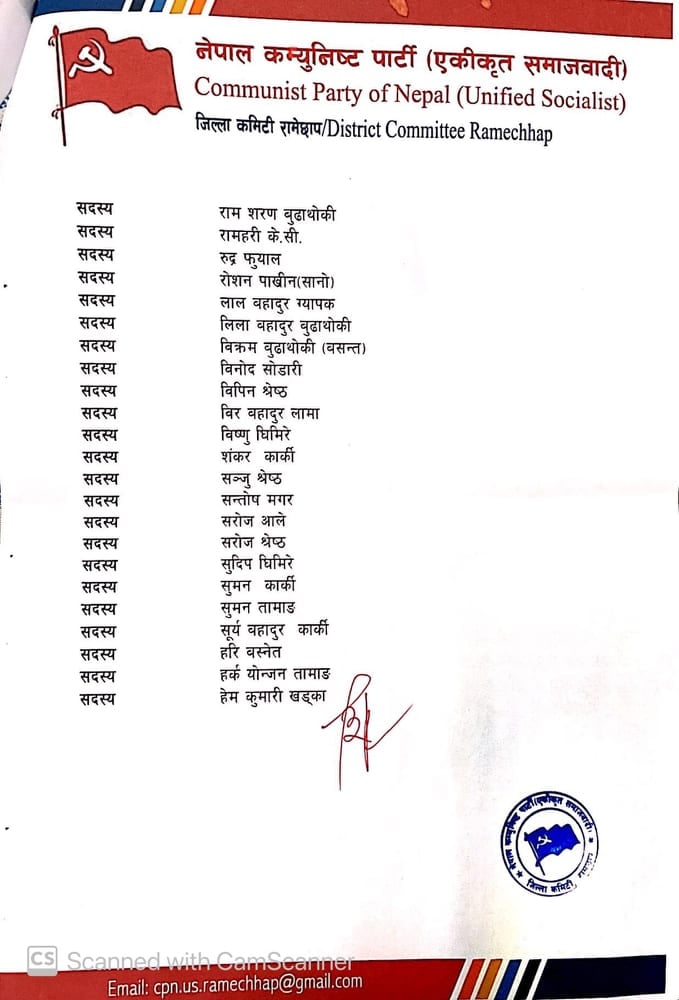 नेपाल कम्युनिष्ट पार्टी (एकीकृत समाजवादी)
Communist Party of Nepal (Unified Socialist)
जिल्ला कमिटी रामेछाप/District Committee Ramechhap
सदस्य राम शरण बुढाथोकी
सदस्य रामहरी के.सी.
सदस्य रुद्र फुयाल
सदस्य रोशन पाख्रीन(सानो)
सदस्य लाल वहादुर ग्यापक
सदस्य लिला वहादुर बुढाथोकी
सदस्य विक्रम बुढाथोकी (वसन्त)
सदस्य विनोद सोडारी
सदस्य विपिन श्रेष्ठ
सदस्य विर वहादुर लामा
सदस्य विष्णु घिमिरे
सदस्य शंकर कार्की
सदस्य सञ्जु श्रेष्ठ
सदस्य सन्तोष मगर
सदस्य सरोज आले
सदस्य सरोज श्रेष्ठ
सदस्य सुदिप घिमिरे
सदस्य सुमन कार्की
सदस्य सुमन तामाङ
सदस्य सूर्य वहादुर कार्की
सदस्य हरि वस्नेत
सदस्य हर्क योन्जन तामाङ
सदस्य हेम कुमारी खड्का
नेपाल कम्युनिष्ट पार्टी(एकीकृत समाजवादी)
जिल्ला कमिटी, रामेछाप
CS Scanned with CamScanner
Email: cpn.us.ramechhap@gmail.com